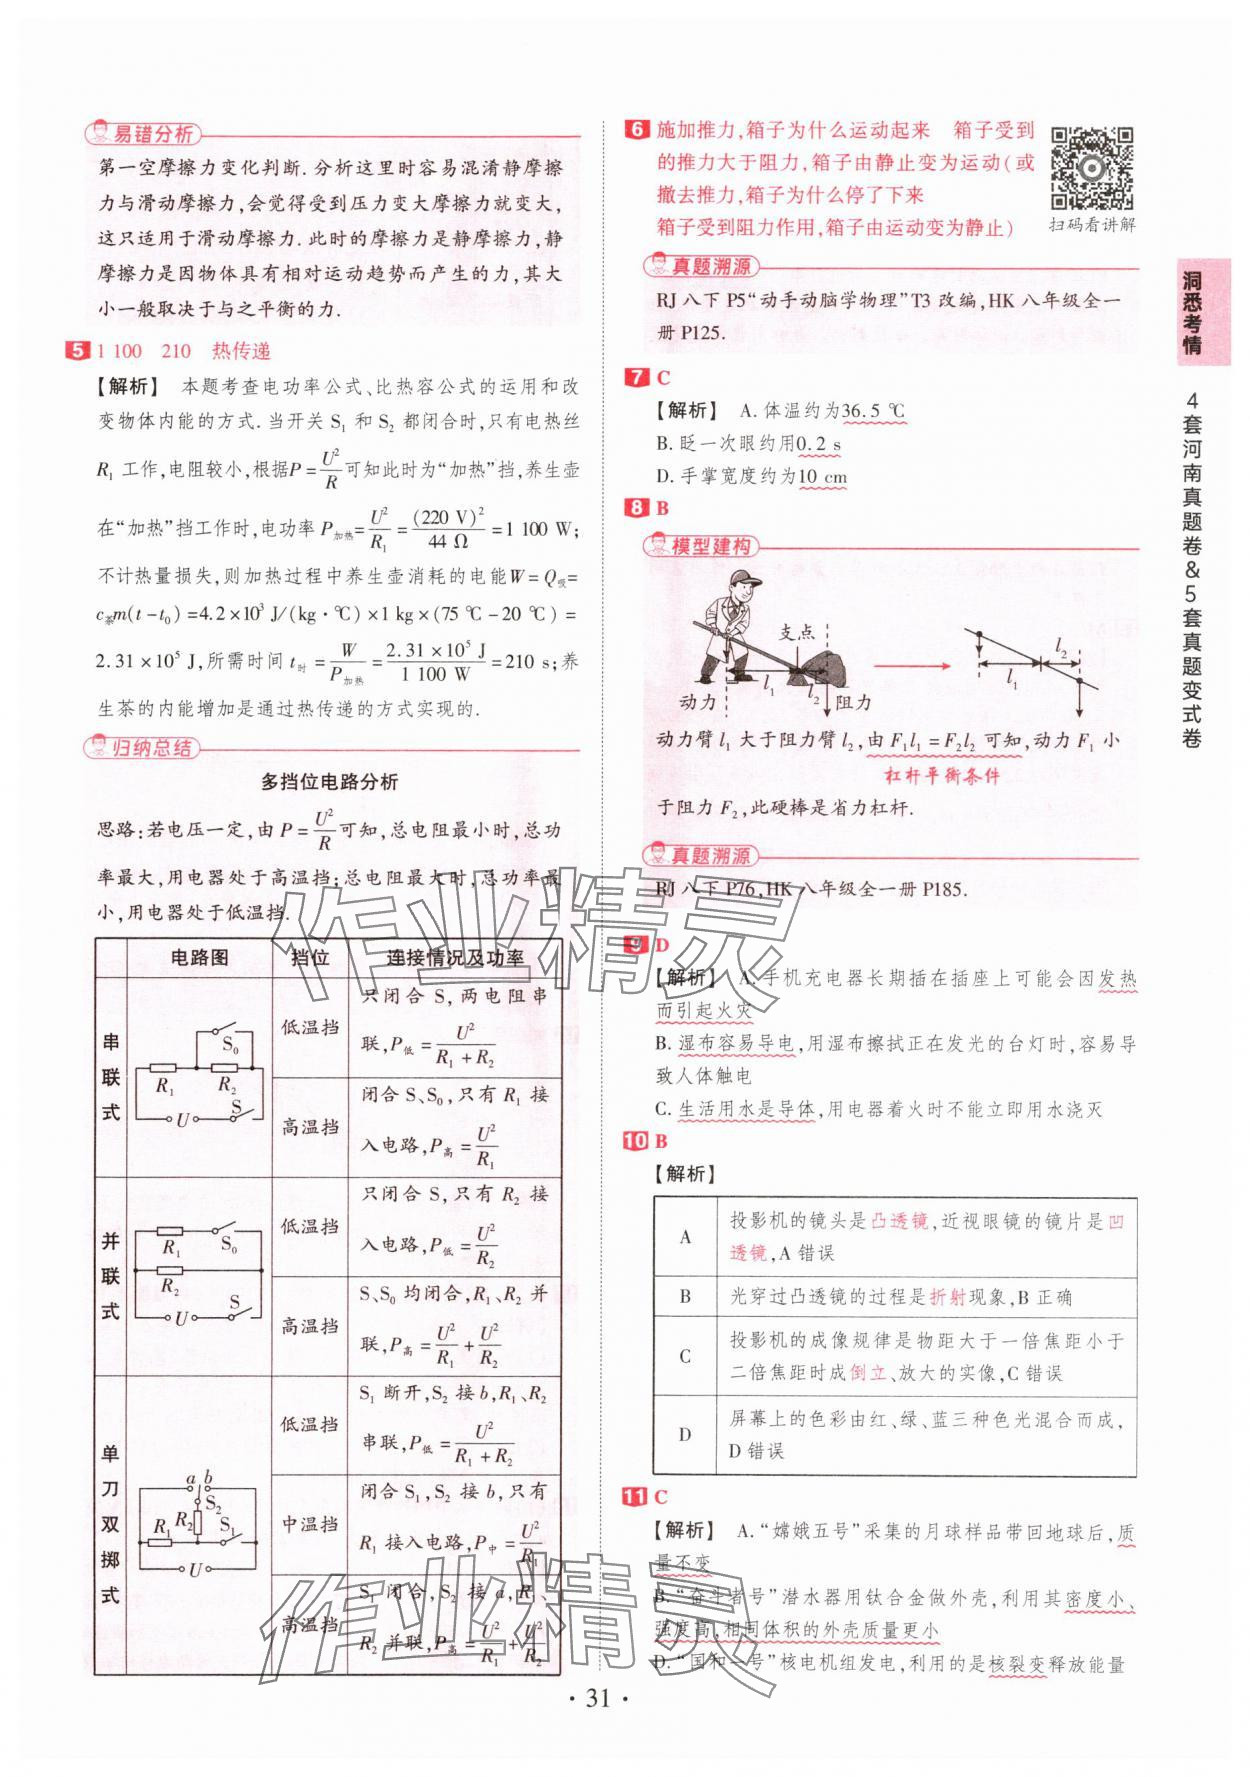 易错分析
第一空摩擦力变化判断. 分析这里时容易混淆静摩擦
力与滑动摩擦力,会觉得受到压力变大摩擦力就变大,
这只适用于滑动摩擦力. 此时的摩擦力是静摩擦力,静
摩擦力是因物体具有相对运动趋势而产生的力,其大
小一般取决于与之平衡的力.
5 1 100 210 热传递
【解析】 本题考查电功率公式、比热容公式的运用和改
变物体内能的方式. 当开关 S₁ 和 S₂ 都闭合时,只有电热丝
R₁ 工作,电阻较小,根据P=U²/R可知此时为“加热”挡,养生壶
在“加热”挡工作时,电功率 P加热=U²/R₁=(220 V)²/44 Ω=1 100 W;
不计热量损失,则加热过程中养生壶消耗的电能W=Q吸=
c茶m(t-t₀)=4.2×10³ J/(kg·℃)×1 kg×(75 ℃-20 ℃)=
2.31×10⁵ J,所需时间 t时=W/P加热=2.31×10⁵ J/1 100 W=210 s;养
生茶的内能增加是通过热传递的方式实现的.
归纳总结
多挡位电路分析
思路:若电压一定,由 P=U²/R可知,总电阻最小时,总功
率最大,用电器处于高温挡;总电阻最大时,总功率最
小,用电器处于低温挡.
电路图 挡位 连接情况及功率
串联式
S₀
R₁ R₂
U S
低温挡
只闭合 S,两电阻串
联,P低=U²/(R₁+R₂)
高温挡
闭合 S、S₀,只有 R₁ 接
入电路,P高=U²/R₁
并联式
R₁ S₀
R₂
U S
低温挡
只闭合 S,只有 R₂ 接
入电路,P低=U²/R₂
高温挡
S、S₀ 均闭合,R₁、R₂ 并
联,P高=U²/R₁+U²/R₂
单刀双掷式
a b
S₂
R₁ R₂ S₁
U
低温挡
S₁ 断开,S₂ 接 b,R₁、R₂
串联,P低=U²/(R₁+R₂)
中温挡
闭合 S₁,S₂ 接 b,只有
R₁ 接入电路,P中=U²/R₁
高温挡
S₁ 闭合,S₂ 接 a,R₁、
R₂ 并联,P高=U²/R₁+U²/R₂
6 施加推力,箱子为什么运动起来 箱子受到
的推力大于阻力,箱子由静止变为运动(或
撤去推力,箱子为什么停了下来
箱子受到阻力作用,箱子由运动变为静止)
扫码看讲解
真题溯源
RJ 八下 P5“动手动脑学物理”T3 改编,HK 八年级全一
册 P125.
7 C
【解析】 A. 体温约为36.5 ℃
B. 眨一次眼约用0.2 s
D. 手掌宽度约为10 cm
8 B
模型建构
支点
l₁ l₂
动力 阻力
l₁ l₂
动力臂 l₁ 大于阻力臂 l₂,由 F₁l₁=F₂l₂ 可知,动力 F₁ 小
杠杆平衡条件
于阻力 F₂,此硬棒是省力杠杆.
真题溯源
RJ 八下 P76,HK 八年级全一册 P185.
9 D
【解析】 A. 手机充电器长期插在插座上可能会因发热
而引起火灾
B. 湿布容易导电,用湿布擦拭正在发光的台灯时,容易导
致人体触电
C. 生活用水是导体,用电器着火时不能立即用水浇灭
10 B
【解析】
A 投影机的镜头是凸透镜,近视眼镜的镜片是凹
透镜,A 错误
B 光穿过凸透镜的过程是折射现象,B 正确
C 投影机的成像规律是物距大于一倍焦距小于
二倍焦距时成倒立、放大的实像,C 错误
D 屏幕上的色彩由红、绿、蓝三种色光混合而成,
D 错误
11 C
【解析】 A. “嫦娥五号”采集的月球样品带回地球后,质
量不变
B. “奋斗者号”潜水器用钛合金做外壳,利用其密度小、
强度高,相同体积的外壳质量更小
D. “国和一号”核电机组发电,利用的是核裂变释放能量
洞悉考情
4套河南真题卷&5套真题变式卷
作业精灵
作业精灵
· 31 ·